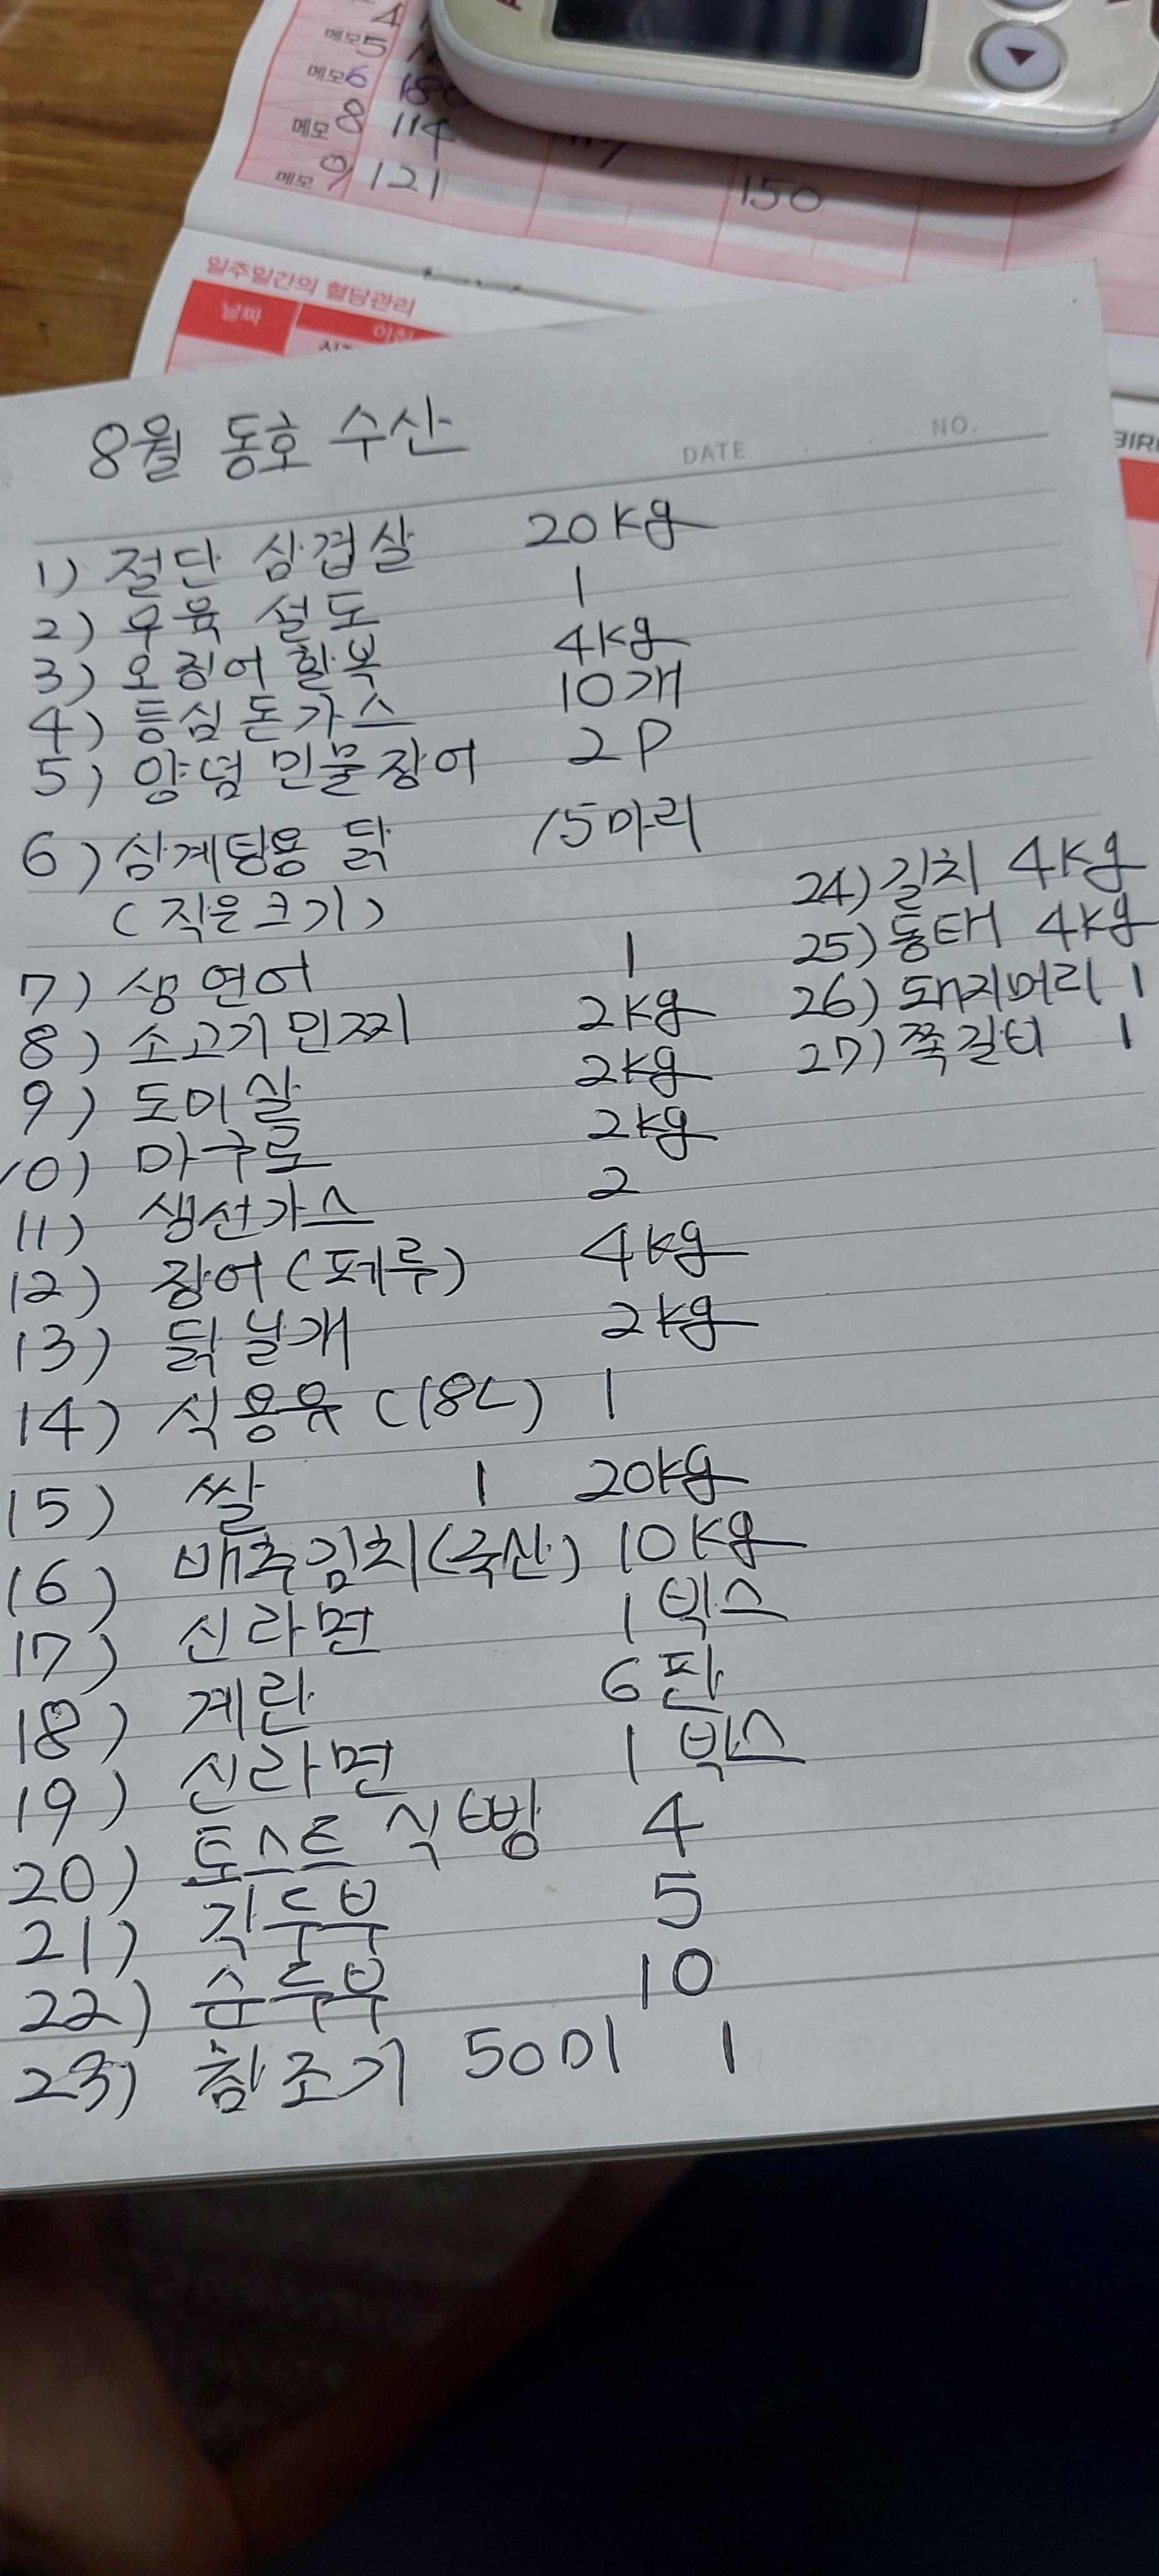 4
메모 5
메모 6 186
메모 8 114
메모 9 121
150
일주일간의 혈당관리
날짜
아침
DATE
NO.
8월 동호 수산
1) 절단 삼겹살 20kg
2) 우육 설도 1
3) 오징어 할복 4kg
4) 등심 돈가스 10개
5) 양념 민물장어 2P
6) 삼계탕용 닭 15마리
(직은크기)
7) 생연어 1
8) 소고기민찌 2kg
9) 도미살 2kg
10) 마구로 2kg
11) 생선가스 2
12) 장어(페루) 4kg
13) 닭날개 2kg
14) 식용유 (18L) 1
15) 쌀 1 20kg
16) 배추김치(국산) 10kg
17) 신라면 1박스
18) 계란 6판
19) 신라면 1박스
20) 토스트 식빵 4
21) 각두부 5
22) 순두부 10
23) 참조기 50미 1
24) 갈치 4kg
25) 동태 4kg
26) 돼지머리 1
27) 쪽갈비 1